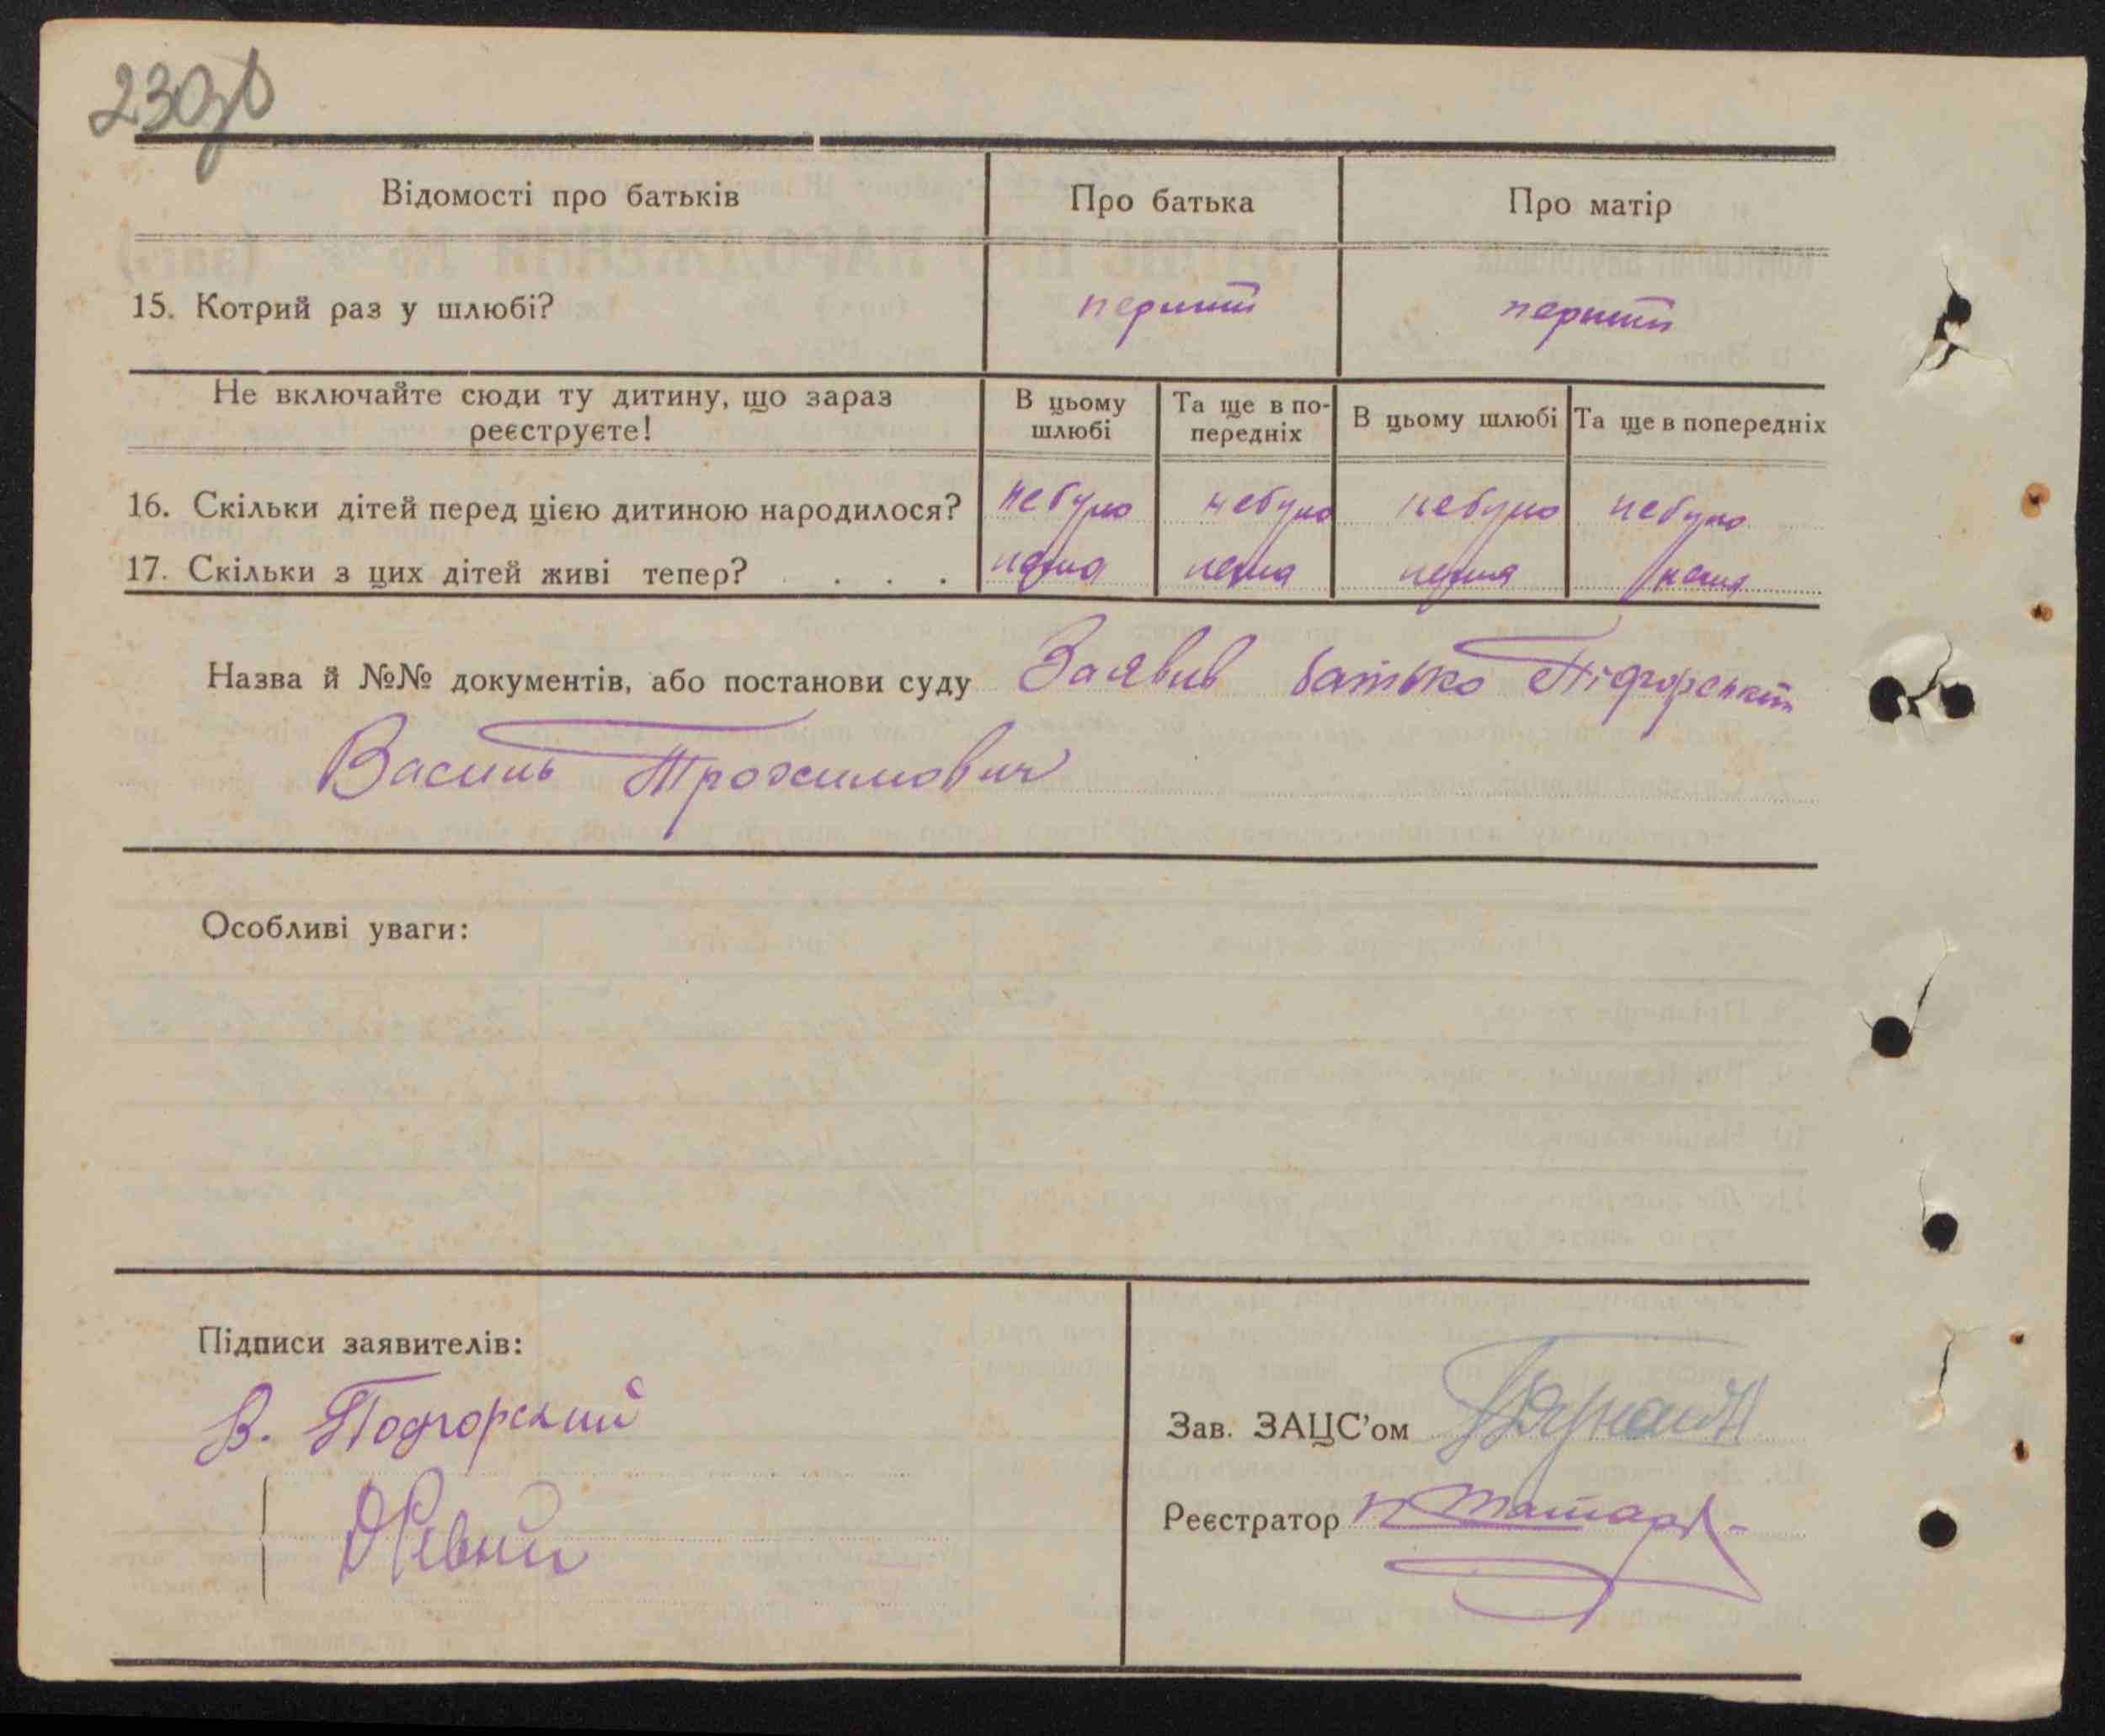 230зв
Відомості про батьків Про батька Про матір
15. Котрий раз у шлюбі? перший перший
Не включайте сюди ту дитину, що зараз реєструєте! В цьому шлюбі Та ще в попередніх В цьому шлюбі Та ще в попередніх
16. Скільки дітей перед цією дитиною народилося? небуло небуло небуло небуло
17. Скільки з цих дітей живі тепер? . . . нема нема нема нема
Назва й №№ документів, або постанови суду Заявив батько Підгорський
Василь Трохимович
Особливі уваги:
Підписи заявителів:
В. Подгорский
Зав. ЗАЦС'ом
Реєстратор